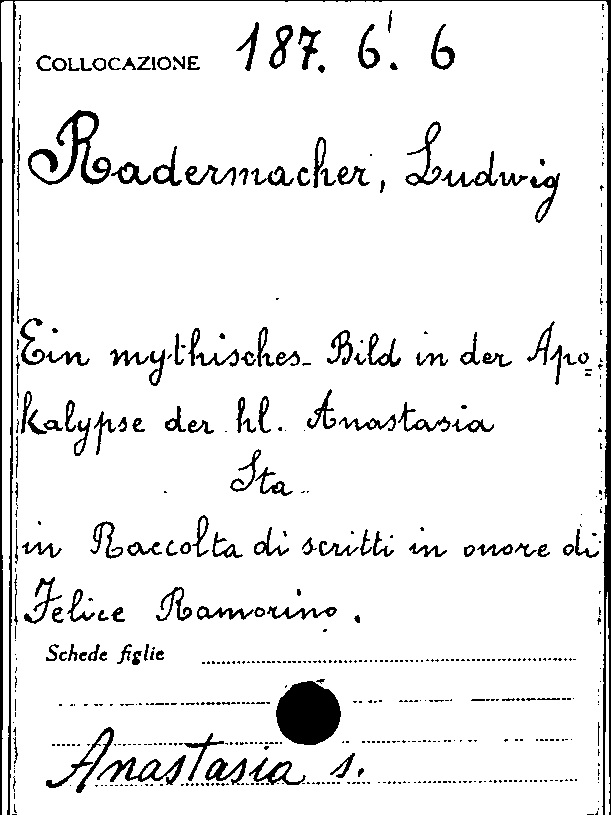 COLLOCAZIONE 187. 6. 6
Radermacher, Ludwig
Ein mythisches Bild in der Apo=
kalypse der hl. Anastasia
Sta
in Raccolta di scritti in onore di
Felice Ramorino.
Schede figlie
Anastasia s.